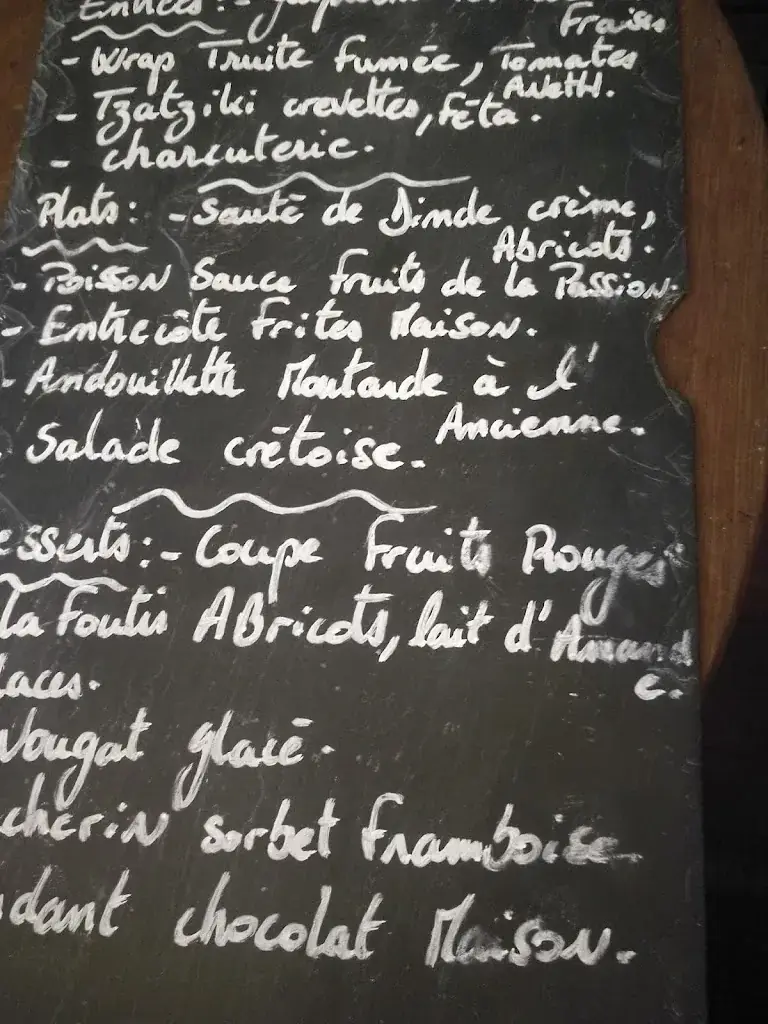 Entrées: -
Frais
- Wrap Truite fumée, Tomates
Aneth.
- Tzatziki crevettes, Féta.
- charcuterie.
Plats: - Sauté de Dinde crème,
Abricots.
- Poisson Sauce fruits de la Passion.
- Entrecôte frites Maison.
- Andouillette Moutarde à l'
Ancienne.
Salade crétoise.
esserts: - Coupe Fruits Rouges
la Foutis Abricots, lait d'Amand
e.
laces.
Nougat glacé.
cherin sorbet framboise
dant chocolat Maison.